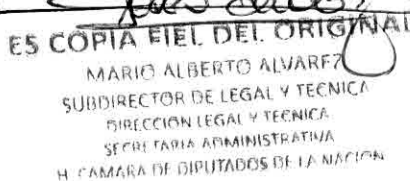 ES COPIA FIEL DEL ORIGINAL
MARIO ALBERTO ALVAREZ
SUBDIRECTOR DE LEGAL Y TECNICA
DIRECCION LEGAL Y TECNICA
SECRETARIA ADMINISTRATIVA
H CAMARA DE DIPUTADOS DE LA NACION